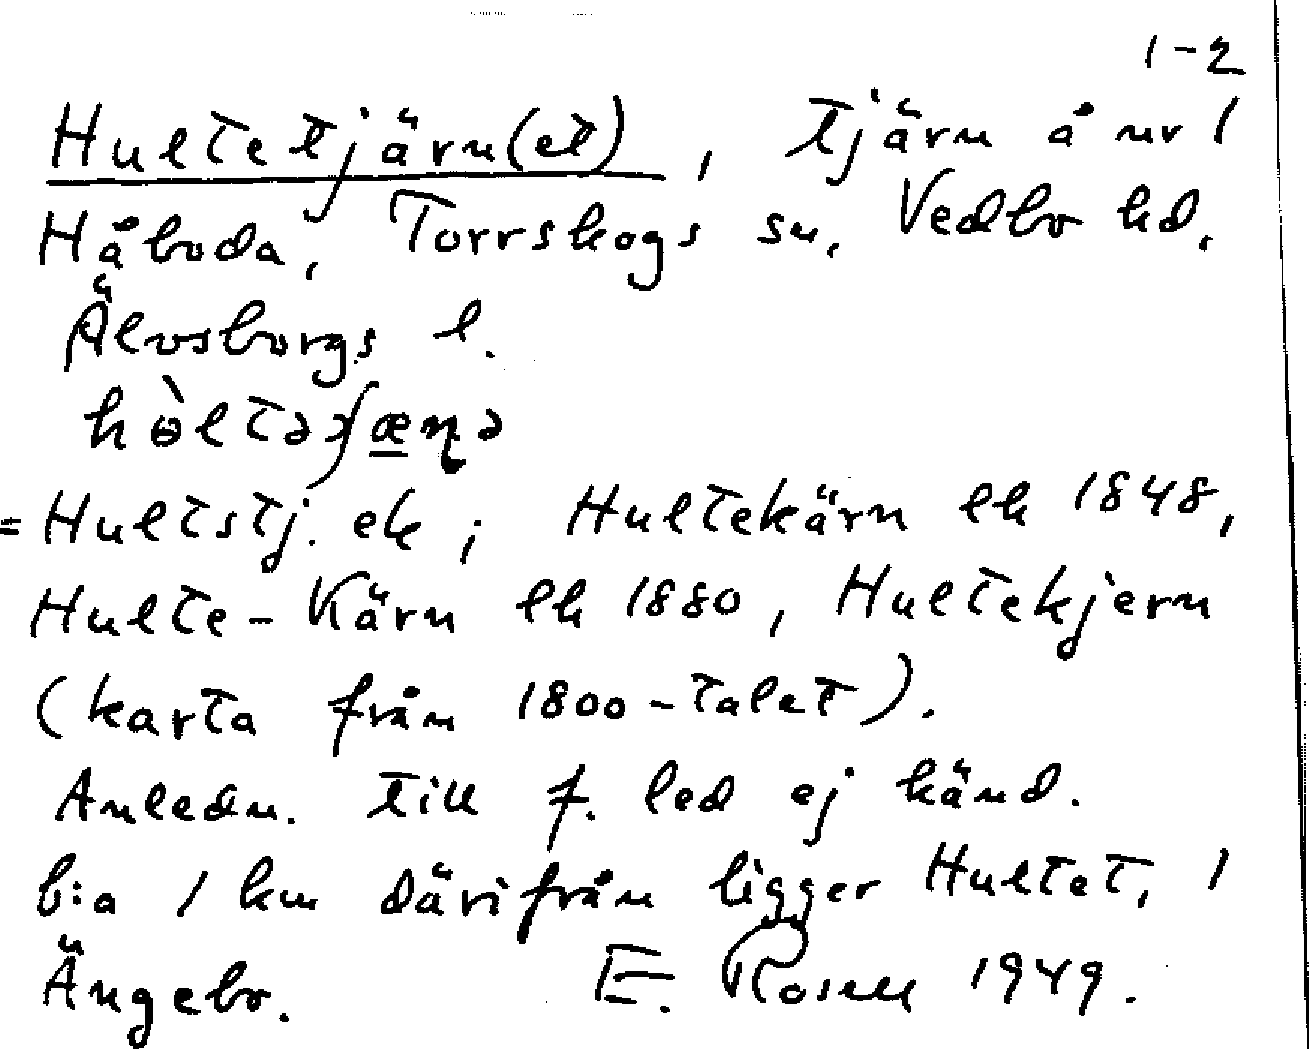 1-2
Hultetjärn(et), tjärn å nr 1
Håboda, Torrskogs sn, Vedbo hd,
Älvsborgs l.
=Hultstj. ek; Hultekärn lh 1848,
Hulte-Kärn lh 1880, Hultekjern
(karta från 1800-talet).
Anledn. till f. led ej känd.
b:a 1 km därifrån ligger Hultet, 1
Ängebo. E. Rosell 1949.